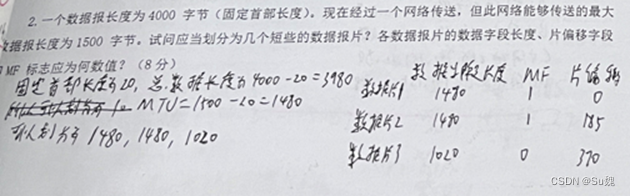 2. 一个数据报长度为4000 字节（固定首部长度）。现在经过一个网络传送，但此网络能够传送的最大
数据报长度为1500 字节。试问应当划分为几个短些的数据报片？各数据报片的数据字段长度、片偏移字段
MF 标志应为何数值？（8 分）
固定首部长度为20, 总数据长度为4000-20=3980
MTU=1500-20=1480
可以划分为 1480, 1480, 1020
数据字段长度 MF 片偏移
数据报片1 1480 1 0
数据报片2 1480 1 185
数据报片3 1020 0 370
CSDN @Su媿